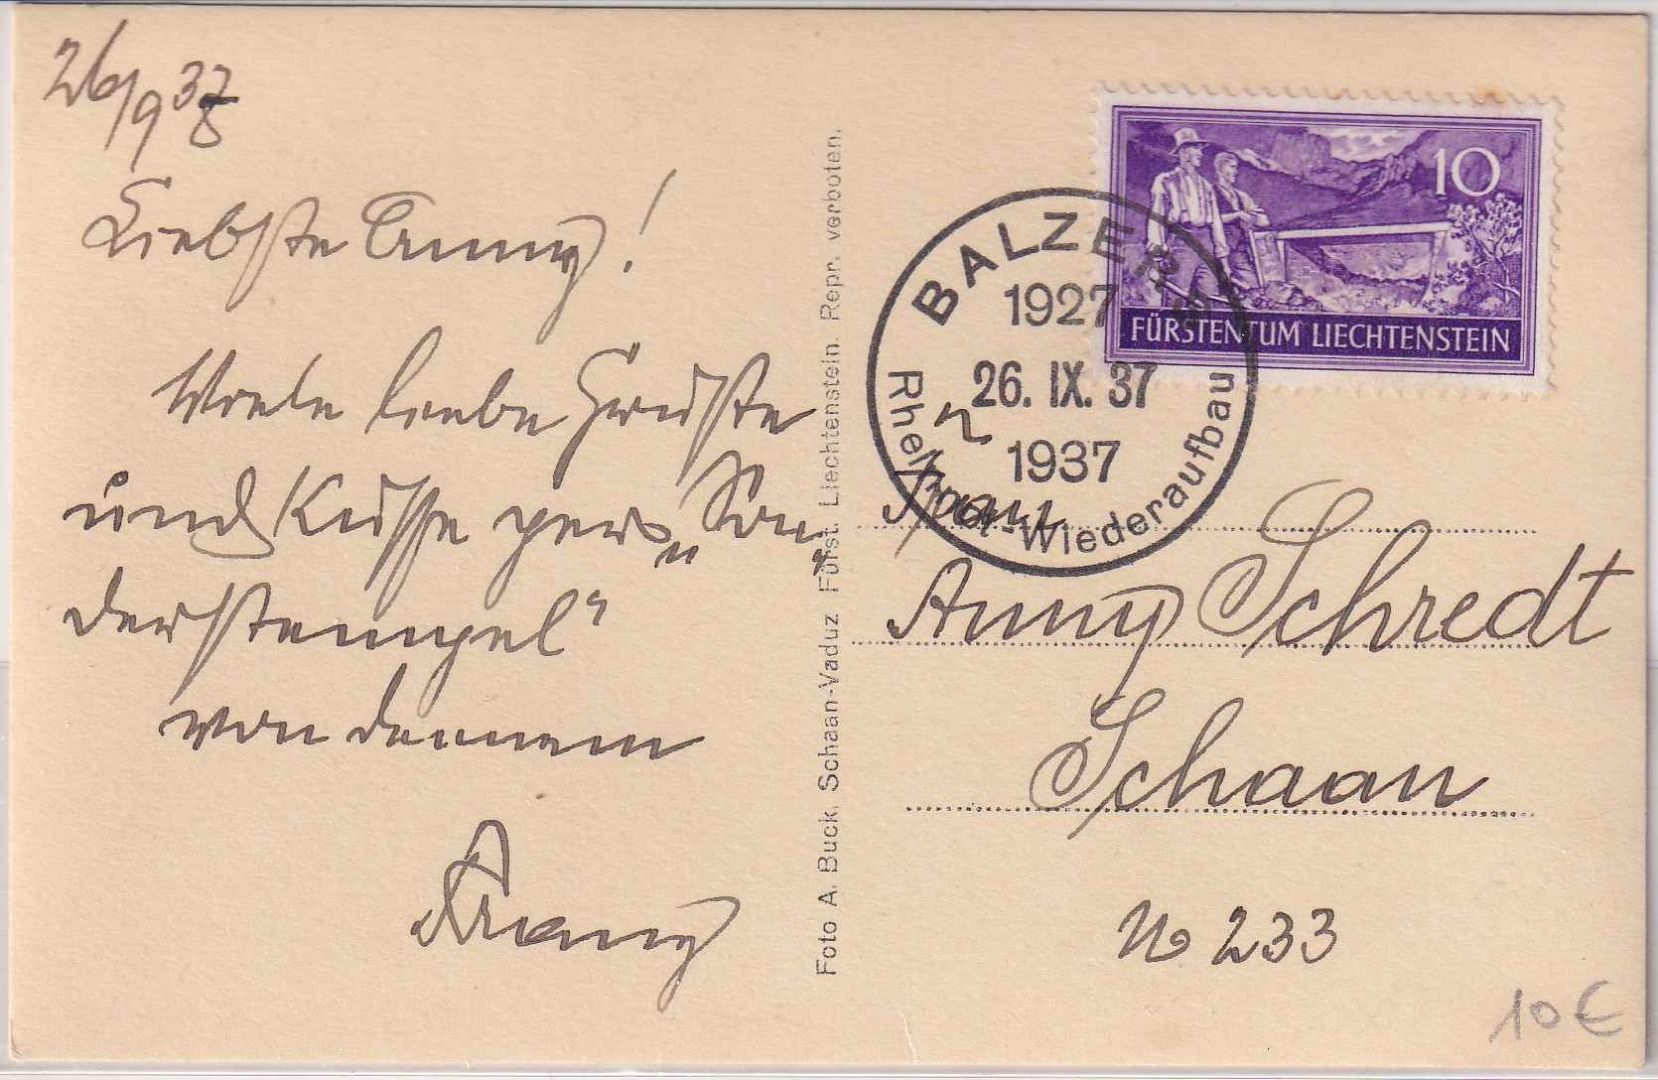 26/9 37
Liebste Anny!
Viele liebe Grüsse
und Küsse per „Son„
derstempel"
von deinem
Franz
Foto A. Buck, Schaan-Vaduz Fürst. Liechtenstein. Repr. verboten.
10
FÜRSTENTUM LIECHTENSTEIN
BALZERS
1927
26. IX. 37
1937
Rheinnot-Wiederaufbau
Anny Schredt
Schaan
No 233
10 €